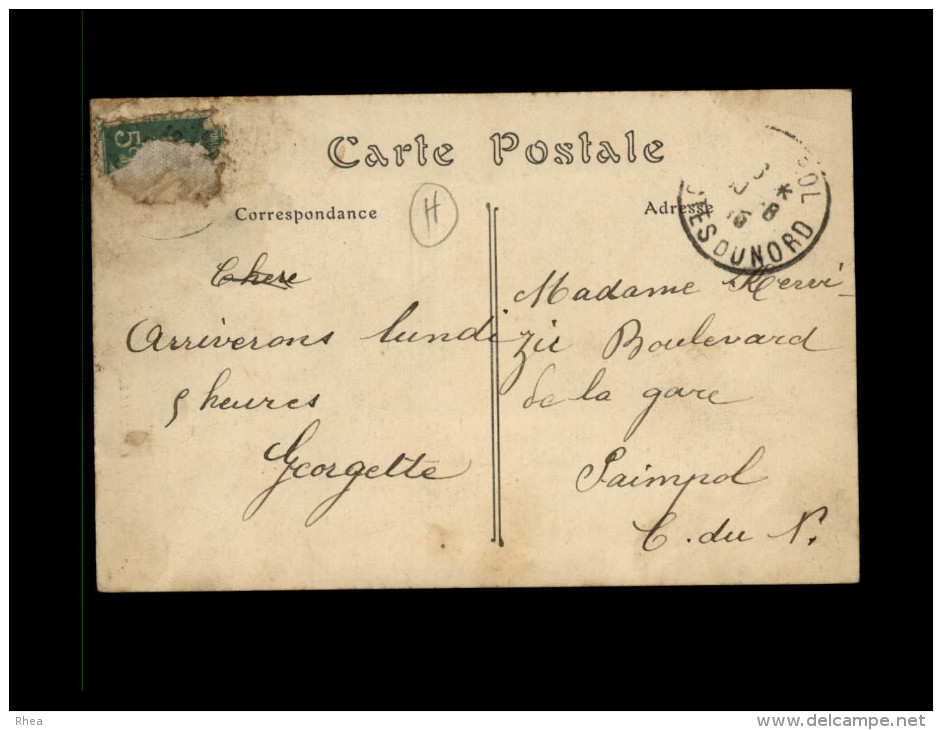 Carte Postale
Correspondance
H
Adresse
POL
COTES DU NORD
5
Chere
Arriverons lundi
5 heures
Georgette
Madame Kervi-
zic Boulevard
de la gare
Paimpol
C. du N.
Rhea
www.delcampe.net